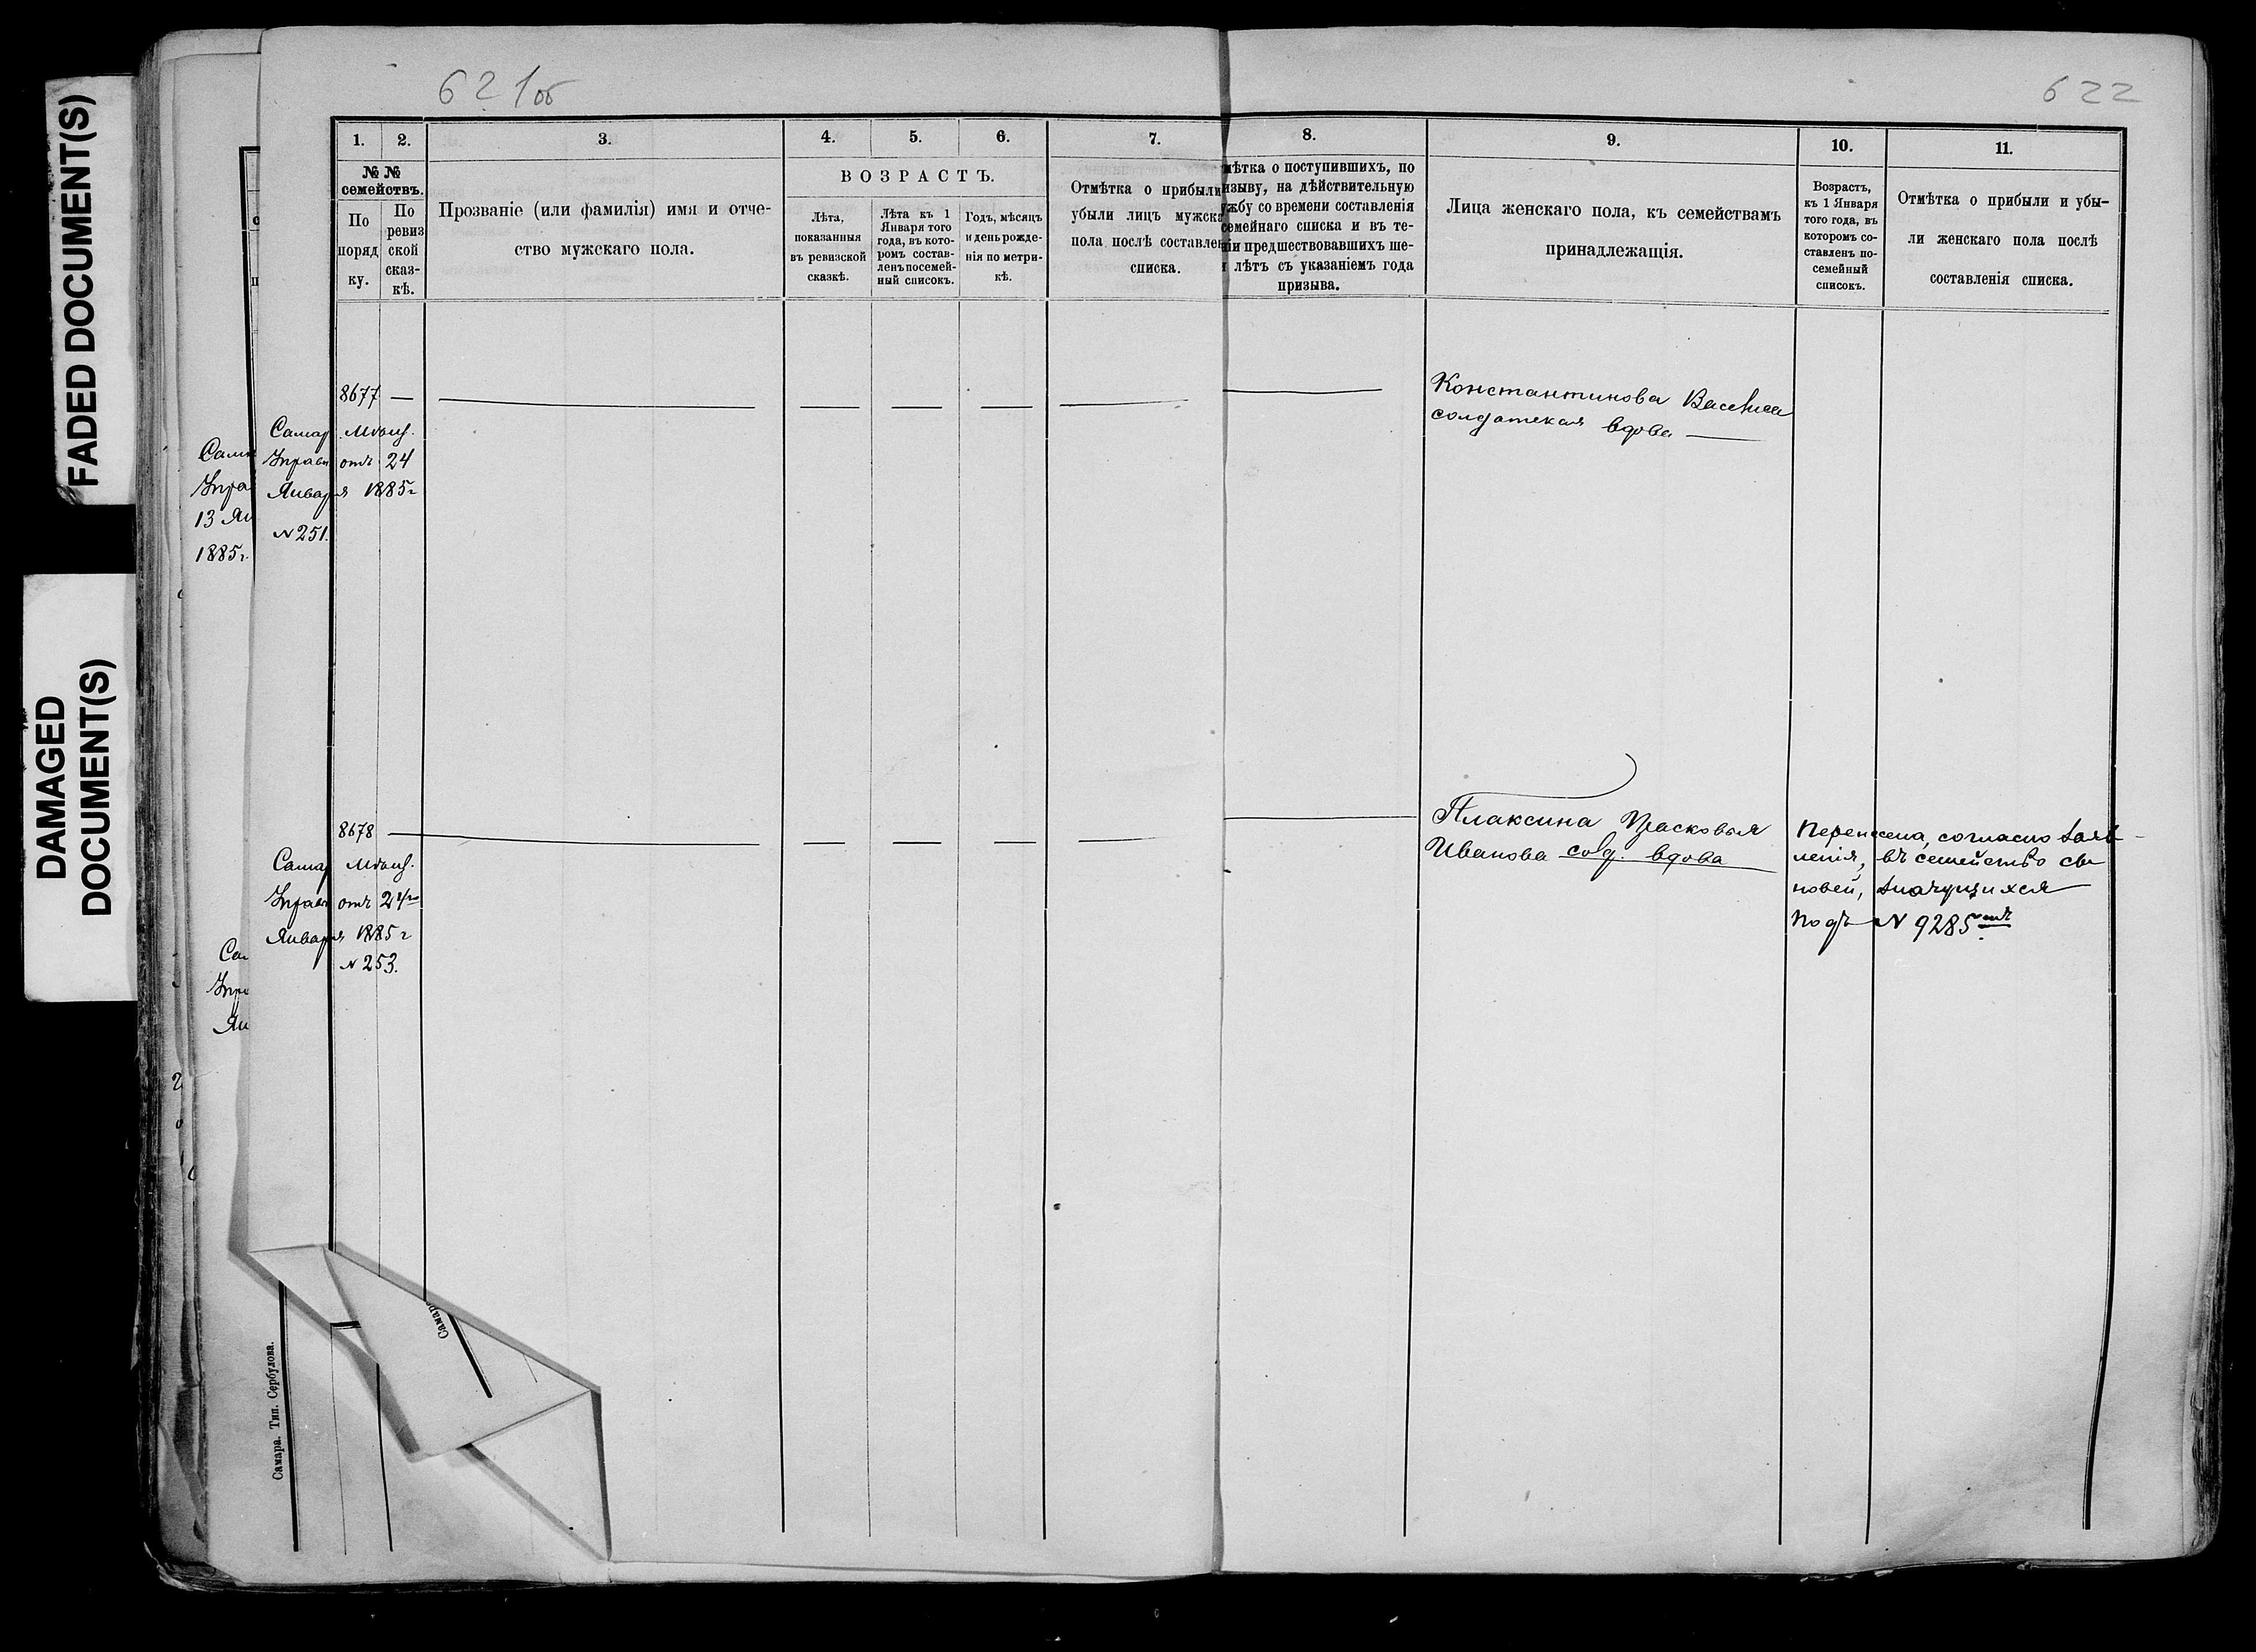 FADED DOCUMENT(S)
DAMAGED
DOCUMENT(S)
621об
622
1. 2. 3. 4. 5. 6. 7. 8. 9. 10. 11.
№ №
семействъ.
По
поряд
ку.
По
ревиз
ской
сказ-
кѣ.
Прозваніе (или фамилія) имя и отче-
ство мужскаго пола.
ВОЗРАСТЪ.
Лѣта,
показанныя
въ ревизской
сказкѣ.
Лѣта къ 1
Января того
года, въ кото-
ромъ состав-
ленъ посемей-
ный списокъ.
Годъ, мѣсяцъ
и день рожде-
нія по метри-
кѣ.
Отмѣтка о прибыли
убыли лицъ мужска
пола послѣ составлен
списка.
мѣтка о поступившихъ, по
изыву, на дѣйствительную
ужбу со времени составленія
семейнаго списка и въ те-
ніи предшествовавшихъ ше-
и лѣтъ съ указаніемъ года
призыва.
Лица женскаго пола, къ семействамъ
принадлежащія.
Возрастъ,
къ 1 Января
того года, въ
которомъ со-
ставленъ по-
семейный
списокъ.
Отмѣтка о прибыли и убы-
ли женскаго пола послѣ
составленія списка.
8677 —
Самар. Мѣщ.
Управы отъ 24
Января 1885г
№ 251.
Константинова Васелиса
солдатская вдова —
8678 —
Самар Мѣщ.
Управы отъ 24го
Января 1885г
№ 253.
Плаксина Прасковья
Иванова солд. вдова
Перенесена, согласно заяв-
ленія, въ семейство сы
новей, значущихся
подъ № 9285мъ
Сам
Упра
13 Ян
1885г.
Са
Упр
Ян
Самара. Тип. Сербулова.
Самар